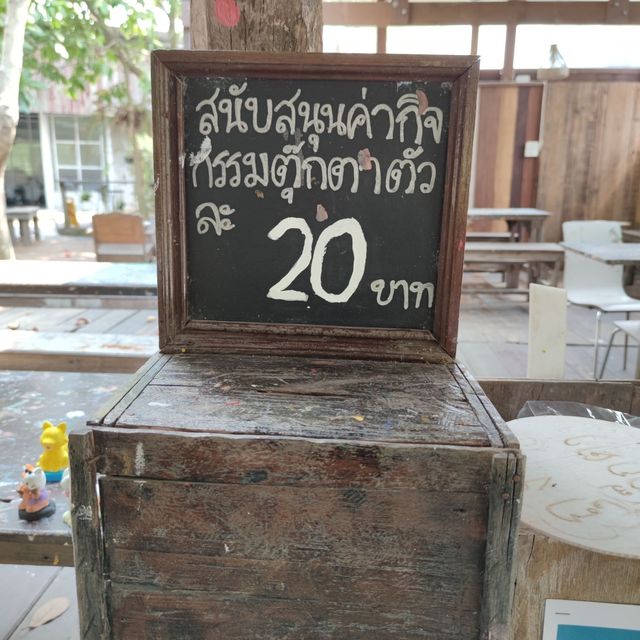 สนับสนุนค่ากิจ
กรรมตุ๊กตาตัว
ละ
20 บาท